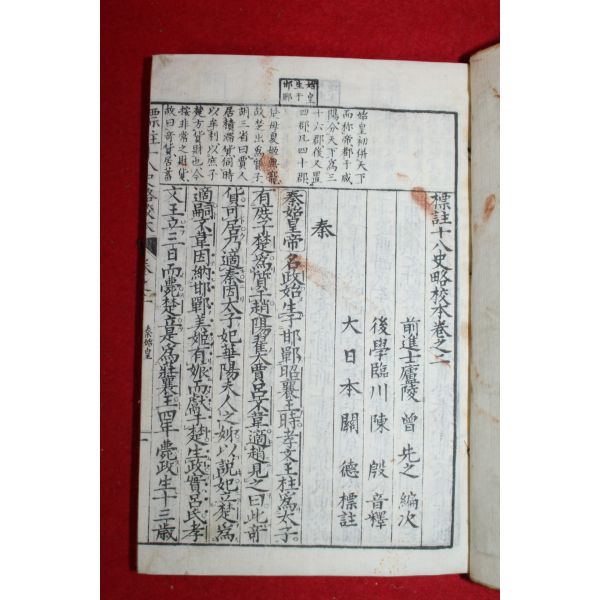 始皇生于邯鄲
始皇初併天下
而称帝都于咸
陽分天下為三
十六郡後又置
四郡凡四十郡
楚母夏姫無寵
故楚出為質子
胡三省曰賈人
居積滞貨伺時
以牟利以庶子
楚方質財也今
按非常之財貨
故曰奇貨居蓄
標註十八史略校本巻之二
前進士廬陵 曾 先之 編次
後學臨川 陳 殷 音釋
大日本 關 德 標註
秦
秦始皇帝名政始生于邯鄲昭襄王時孝文王柱爲太子
有庶子楚爲質于趙陽翟大賈呂不韋適趙見之曰此奇
貨可居乃適秦因太子妃華陽夫人之姊以說妃立楚爲
適嗣不韋因納邯鄲美姫有娠而獻于楚生政實呂氏孝
文王立三日而薨楚立是爲莊襄王四年薨政生十三歲
標註十八史略校本 卷之二 秦始皇 一